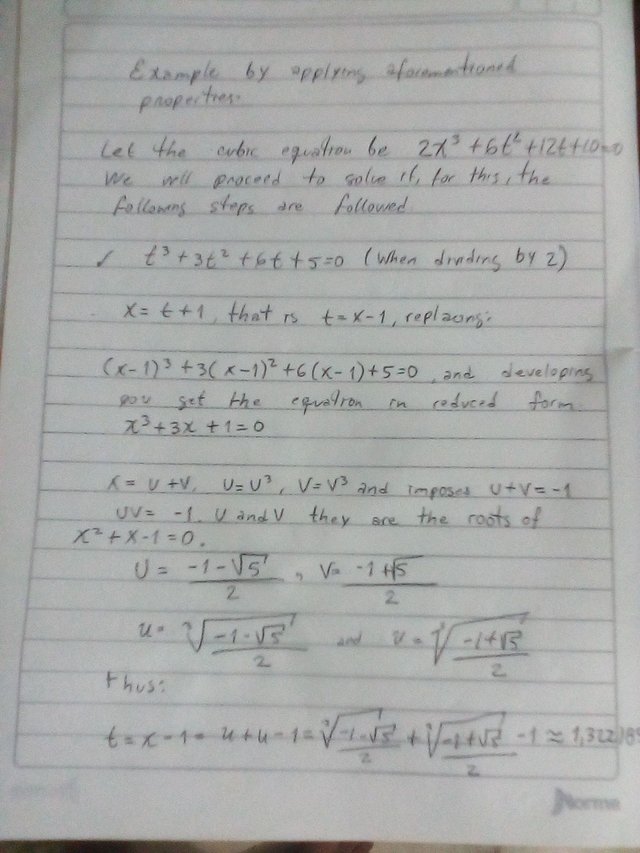 Example by applying aforementioned
properties.
Let the cubic equation be 2x³ + 6t² + 12t + 10 = 0
We will proceed to solve it, for this, the
following steps are followed
✓ t³ + 3t² + 6t + 5 = 0 (when dividing by 2)
x = t + 1, that is t = x - 1, replacing:
(x-1)³ + 3(x-1)² + 6(x-1) + 5 = 0, and developing
you get the equation in reduced form.
x³ + 3x + 1 = 0
x = u + v, U = u³, V = v³ and imposes U + V = -1
UV = -1. U and V they are the roots of
x² + x - 1 = 0.
U = (-1 - √5)/2, V = (-1 + √5)/2
u = ³√((-1 - √5)/2) and v = ³√((-1 + √5)/2)
thus:
t = x - 1 = u + u - 1 = ³√((-1 - √5)/2) + ³√((-1 + √5)/2) - 1 ≈ 1,32218
Norma